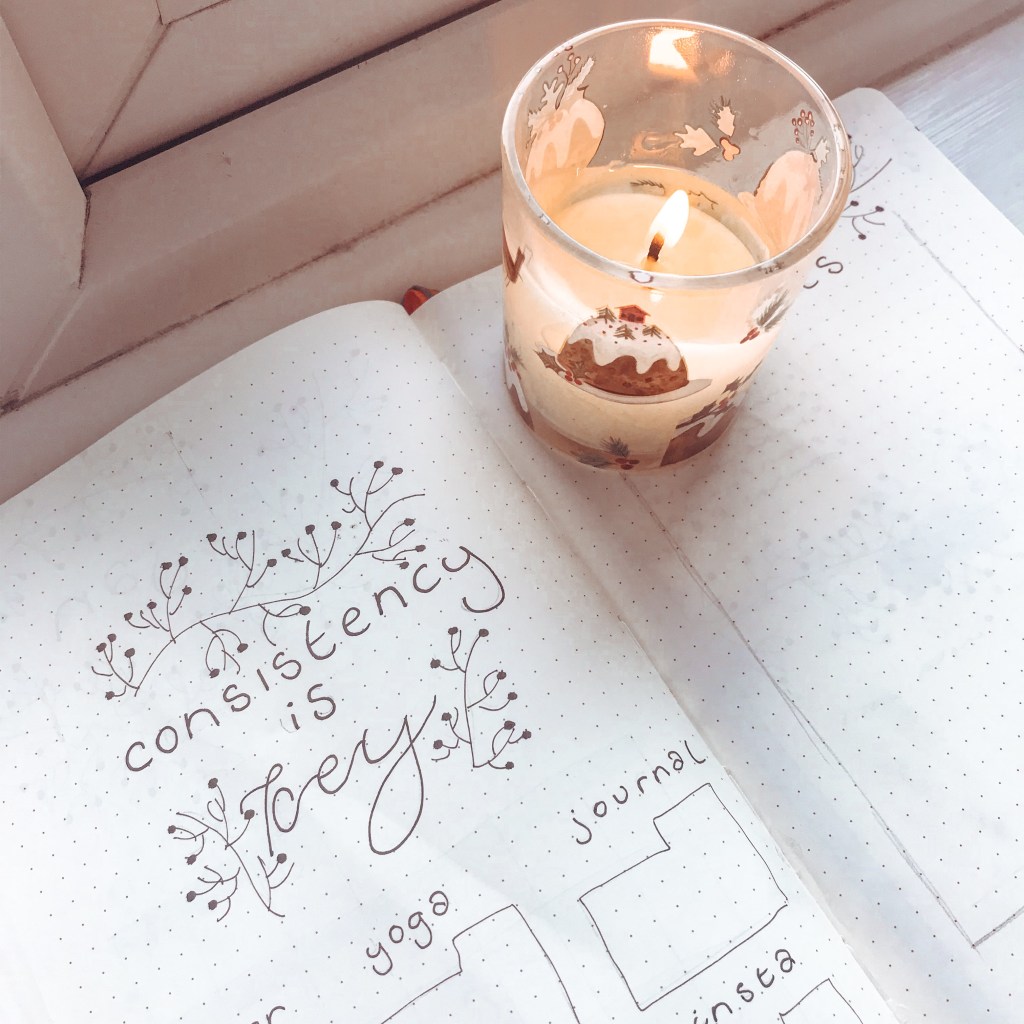 consistency
is
key
journal
yoga
insta